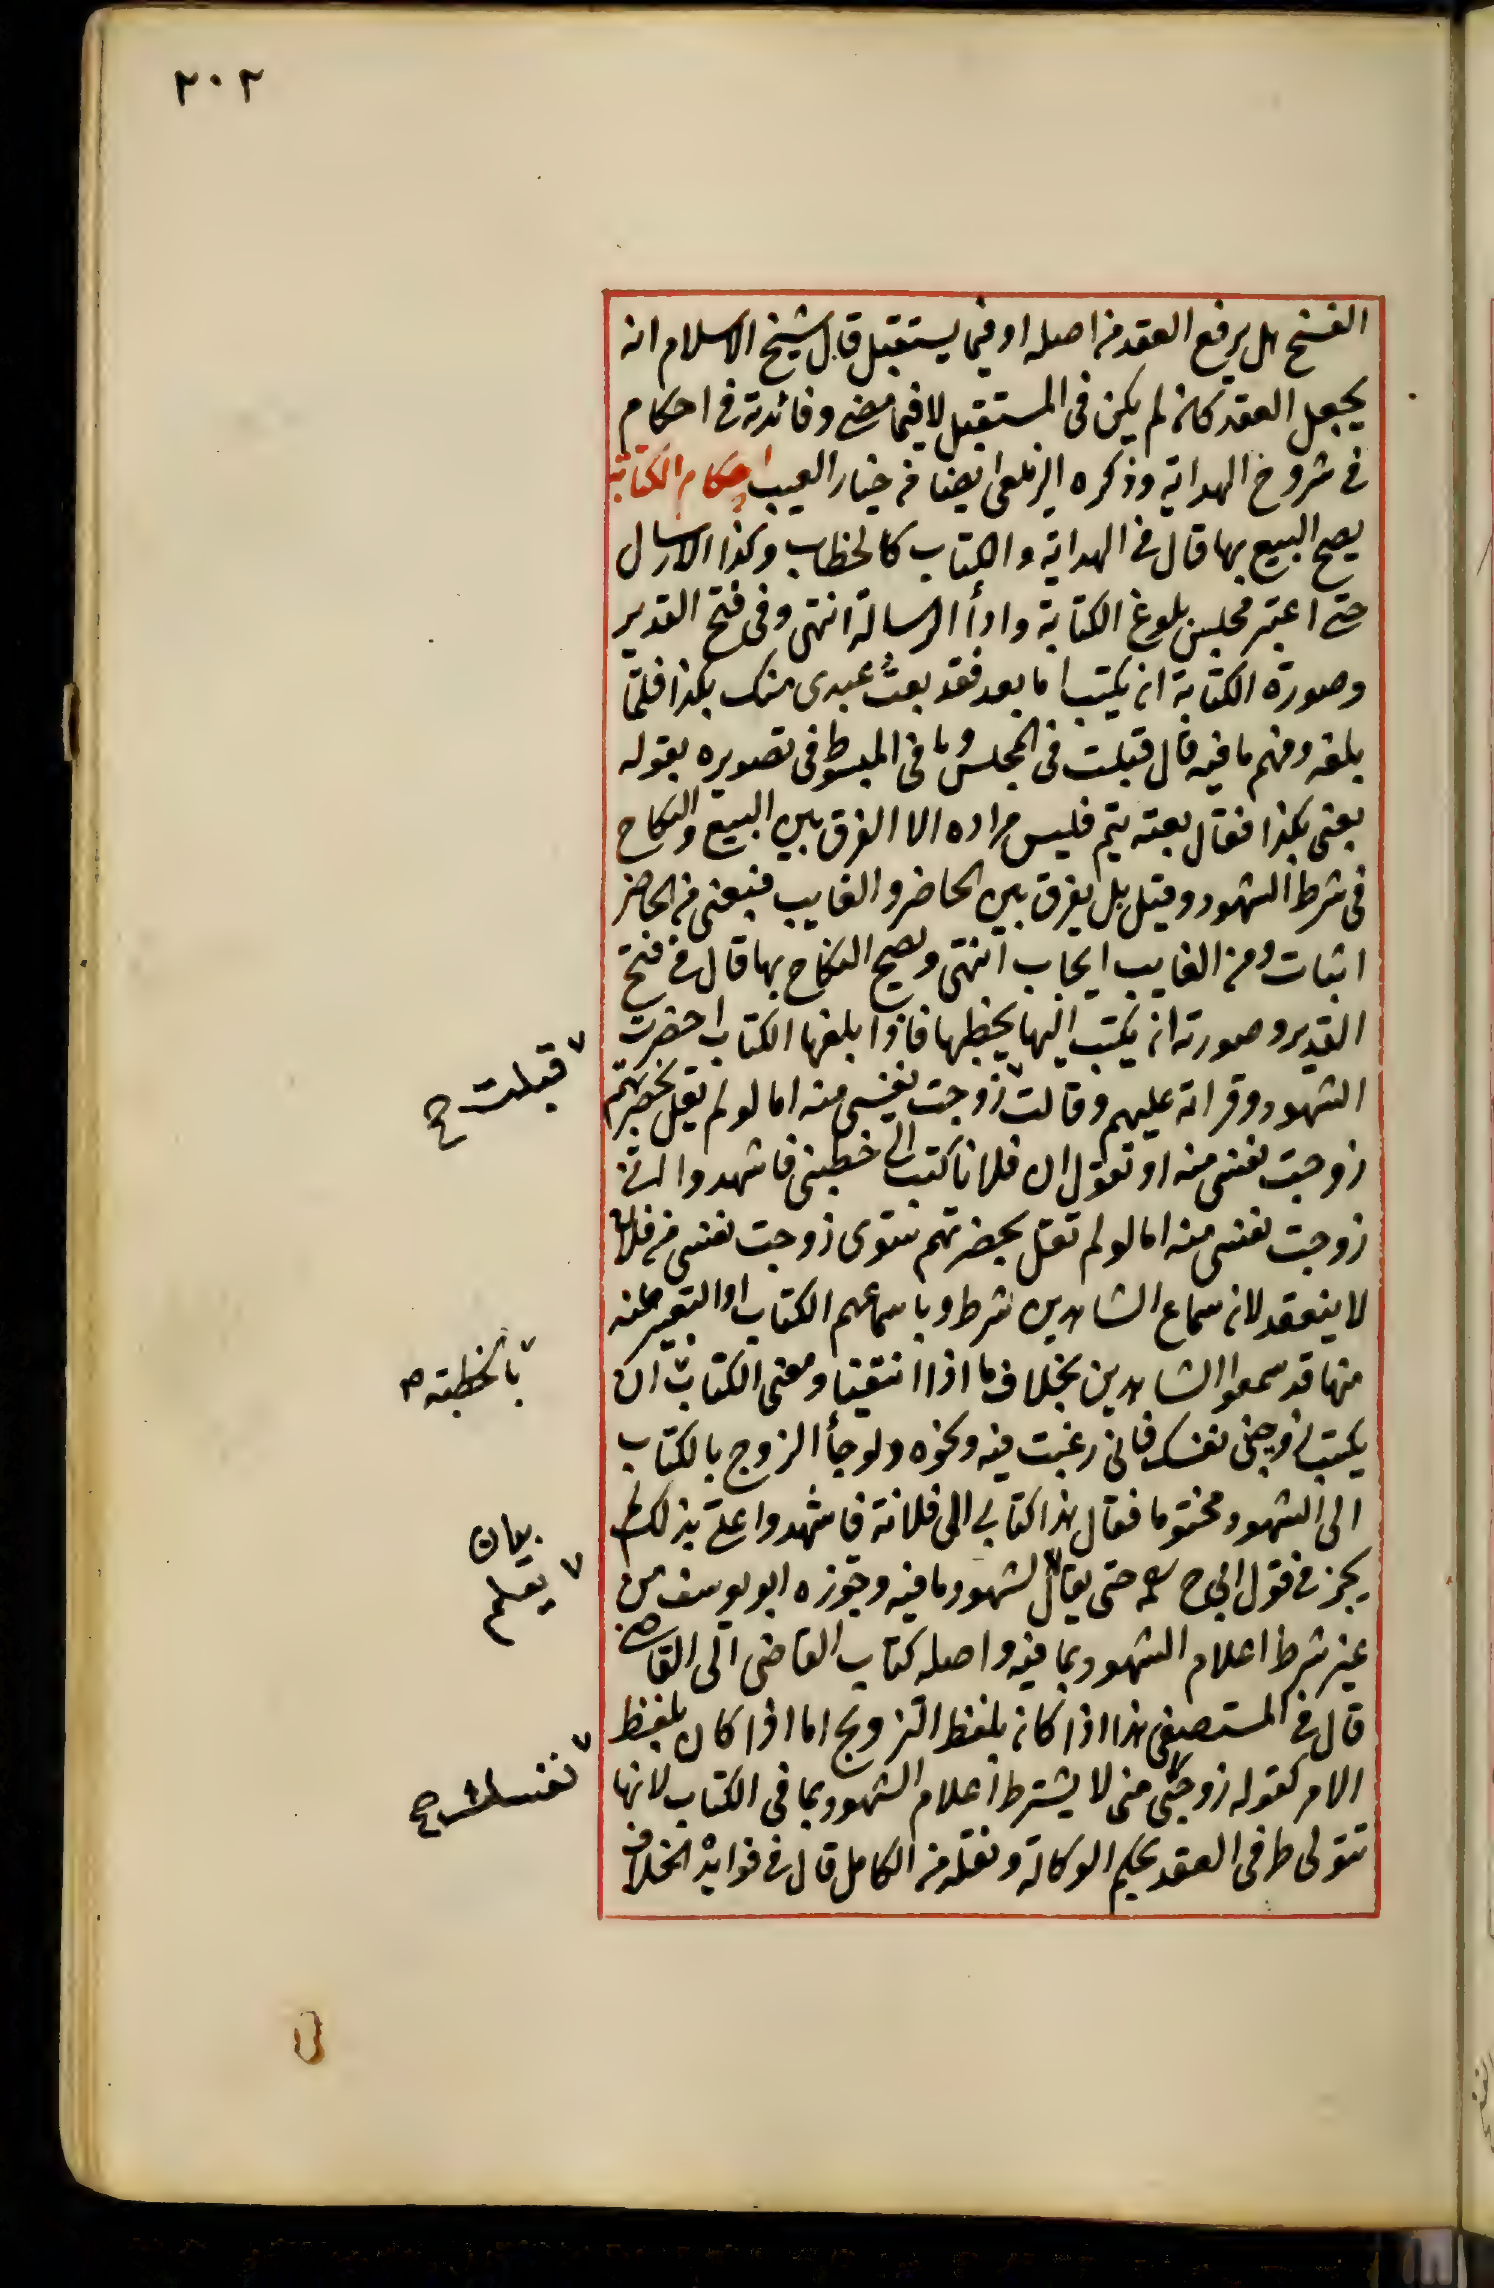 ٢٠٢
الفسخ هل يرفع العقد من اصله او فيما يستقبل قال شيخ الاسلام انه
يجعل العقد كان لم يكن في المستقبل لا فيما مضى وفائدته في احكام
في شروح الهداية وذكره الزيلعي ايضا في خيار العيب احكام الكتابة
يصح البيع بها قال في الهداية والكتاب كالخطاب وكذا الارسال
حتى اعتبر مجلس بلوغ الكتابة واداء الرسالة انتهى وفي فتح القدير
وصورة الكتابة ان يكتب اما بعد فقد بعث عبدى منك بكذا فلما
بلغه وفهم ما فيه قال قبلت في المجلس وما في المبسوط في تصويره بقوله
بعنى بكذا فقال بعته يتم فليس مراده الا الفرق بين البيع والنكاح
في شرط الشهود وقيل بل يفرق بين الحاضر والغايب فبعنى من الحاضر
اثبات ومن الغايب ايجاب انتهى ويصح النكاح بها قال في فتح
القدير وصورته ان يكتب اليها يخطبها فاذا بلغها الكتاب احضرت
الشهود وقراته عليهم وقالت زوجت نفسى منه اما لو لم تقل بحضرتهم
قبلت ح
زوجت نفسى منه او تقول ان فلانا كتب الى خطبنى فاشهدوا انى
زوجت نفسى منه اما لو لم تقل بحضرتهم سوى زوجت نفسى من فلان
لا ينعقد لان سماع الشاهدين شرط وباسماعهم الكتاب او التعبير عنه
منها قد سمعوا الشاهدين بخلاف ما اذا انتفيا ومعنى الكتاب ان
بالخطبة
يكتب زوجنى نفسك فانى رغبت فيه ونحوه ولو جاء الزوج بالكتاب
الى الشهود مختوما فقال هذا كتابى الى فلانة فاشهدوا على بذلك لم
يجز في قول ابى ح حتى يقال لشهود ما فيه وجوزه ابو يوسف من
يعلم
غير شرط اعلام الشهود بما فيه واصله كتاب القاضى الى القاضى
قال في المستصفى هذا اذا كان بلفظ التزويج اما اذا كان بلفظ
الامر كقوله زوجى منى لا يشترط اعلام الشهود بما في الكتاب لانها
نفسك ح
تتولى طرفى العقد بحكم الوكالة ونقله من الكامل قال في فوايد الخلاف